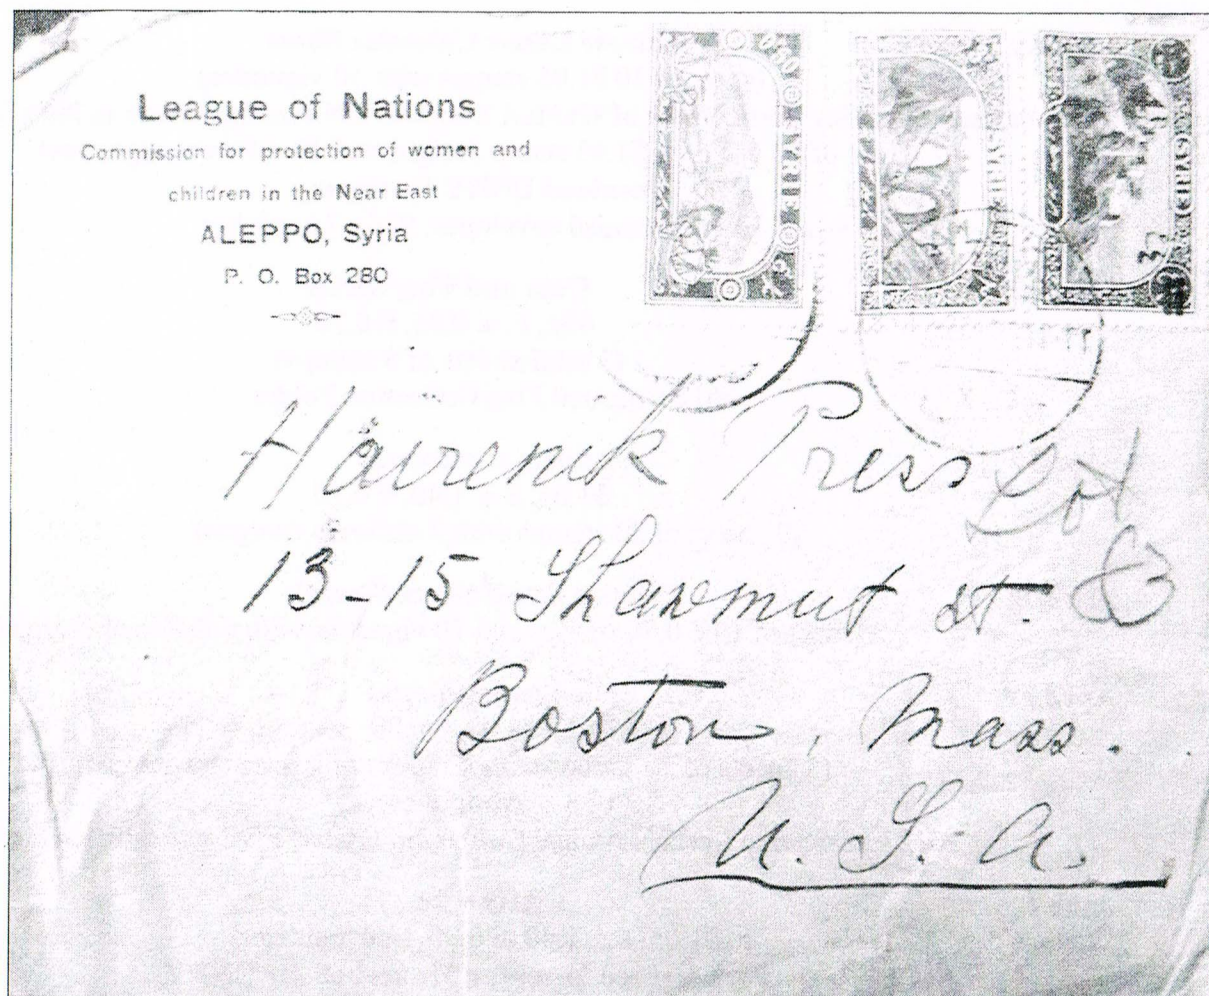 League of Nations
Commission for protection of women and
children in the Near East
ALEPPO, Syria
P. O. Box 280
SYRIE
Hairenik Press
13-15 Shawmut st.
Boston, Mass.
U. S. A.